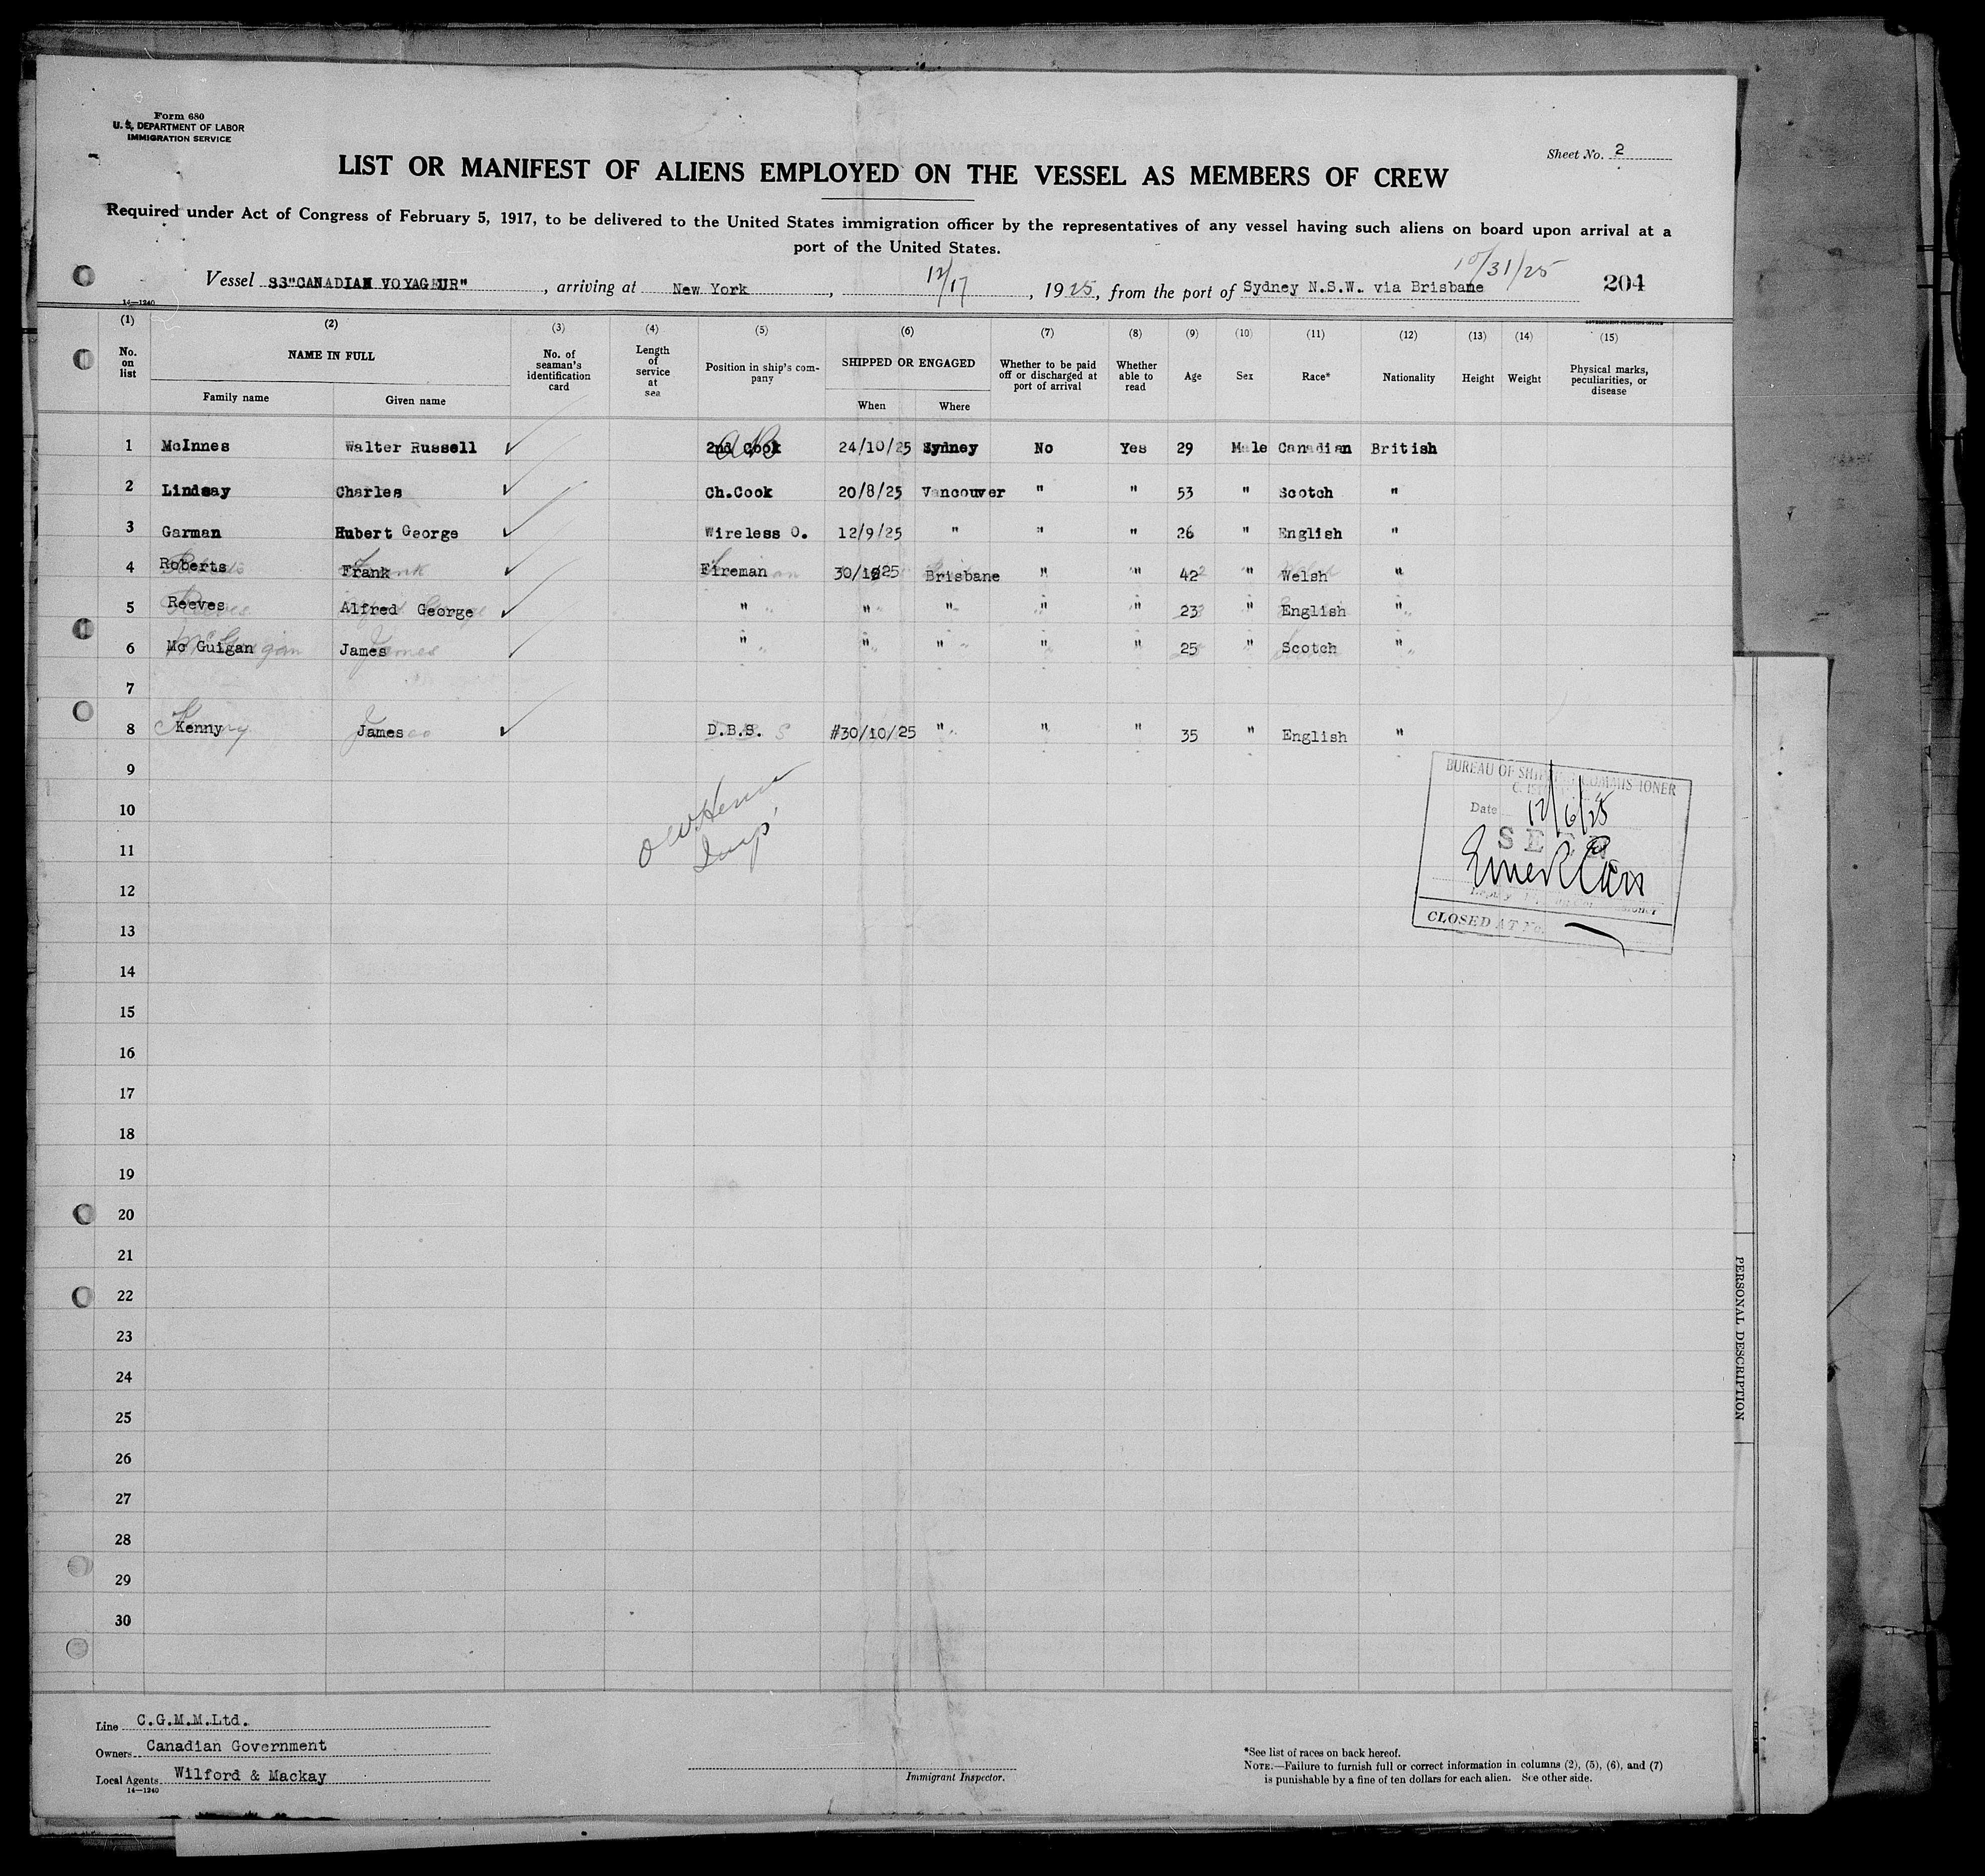 Form 680
U. S. DEPARTMENT OF LABOR
IMMIGRATION SERVICE
Sheet No. 2
LIST OR MANIFEST OF ALIENS EMPLOYED ON THE VESSEL AS MEMBERS OF CREW
Required under Act of Congress of February 5, 1917, to be delivered to the United States immigration officer by the representatives of any vessel having such aliens on board upon arrival at a
port of the United States.
10/31/25
Vessel SS"CANADIAN VOYAGEUR", arriving at New York, 12/17, 1925, from the port of Sydney N.S.W. via Brisbane 204
14—1240
GOVERNMENT PRINTING OFFICE
(1) (2) (3) (4) (5) (6) (7) (8) (9) (10) (11) (12) (13) (14) (15)
No. on list NAME IN FULL Family name Given name No. of seaman's identification card Length of service at sea Position in ship's company SHIPPED OR ENGAGED When Where Whether to be paid off or discharged at port of arrival Whether able to read Age Sex Race* Nationality Height Weight Physical marks, peculiarities, or disease
1 McInnes Walter Russell ✓ 2nd Cook AB 24/10/25 Sydney No Yes 29 Male Canadian British
2 Lindsay Charles ✓ Ch.Cook 20/8/25 Vancouver " " 53 " Scotch "
3 Garman Hubert George ✓ Wireless O. 12/9/25 " " " 26 " English "
4 Roberts Frank ✓ Fireman 30/10/25 Brisbane " " 42 " Welsh "
5 Reeves Alfred George ✓ " " " " " 23 " English "
6 Mc Guigan James ✓ " " " " " 25 " Scotch "
7
8 Kenny James ✓ D.B.S. #30/10/25 " " " 35 " English "
9
10
11
12
13
14
15
16
17
18
19
20
21
22
23
24
25
26
27
28
29
30
BUREAU OF SHIPPING COMMISSIONER
Date 12/6/25
SEEN
CLOSED AT No.
PERSONAL DESCRIPTION
Line C.G.M.M.Ltd.
Owners Canadian Government
Local Agents Wilford & Mackay
14—1240
Immigrant Inspector.
*See list of races on back hereof.
NOTE.—Failure to furnish full or correct information in columns (2), (5), (6), and (7)
is punishable by a fine of ten dollars for each alien. See other side.